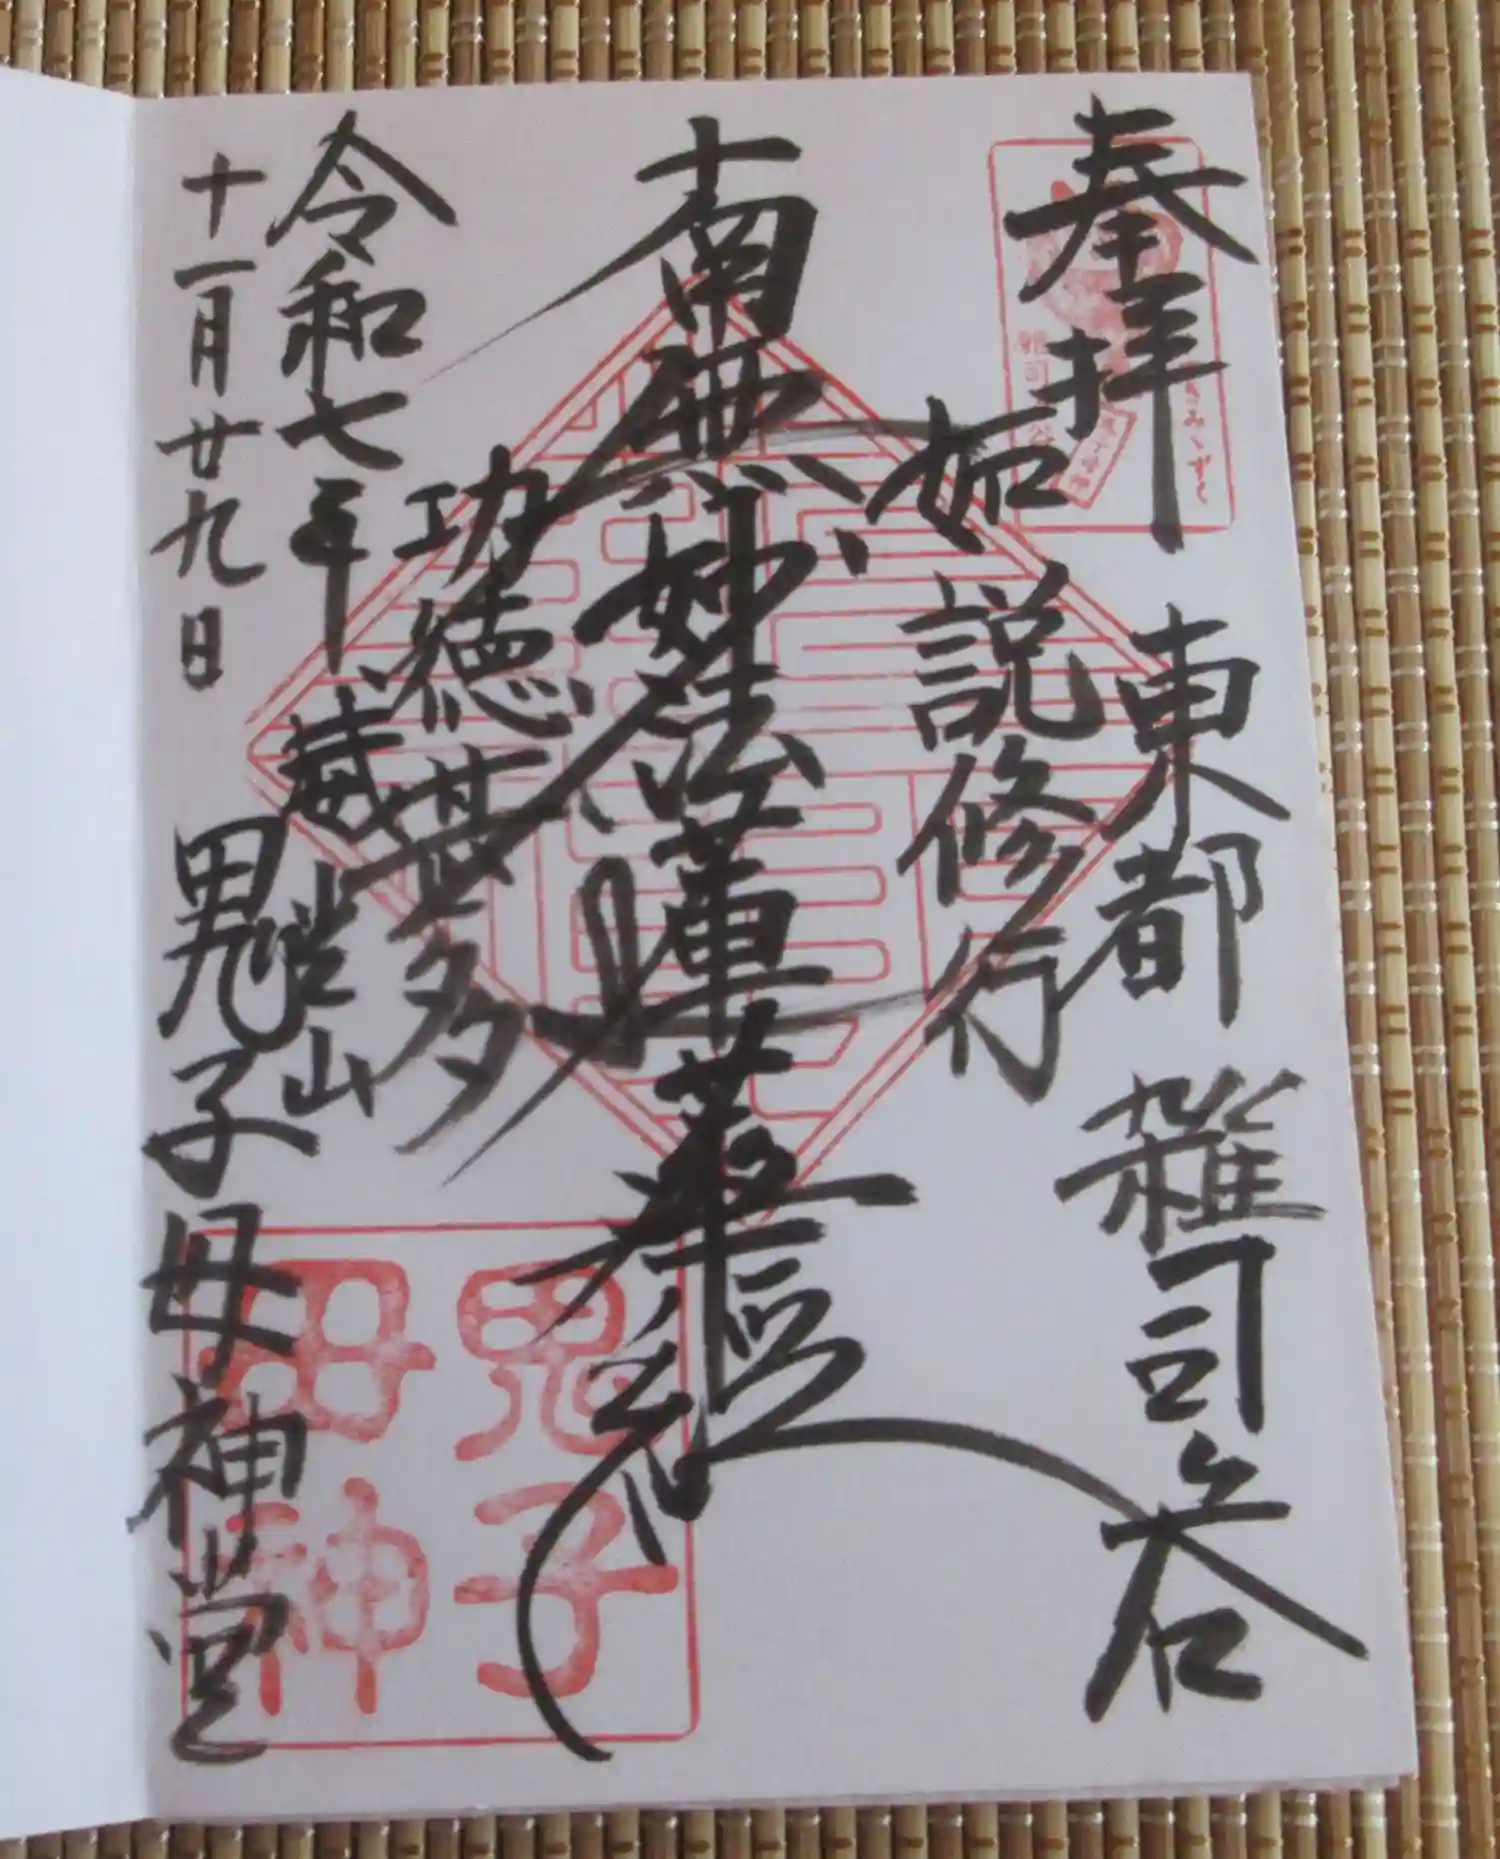 奉拝
東都 雑司谷
如説修行
南無妙法蓮華経
功徳甚多
令和七年
十一月廿九日
威光山
鬼子母神堂
鬼子
母神
雑司谷